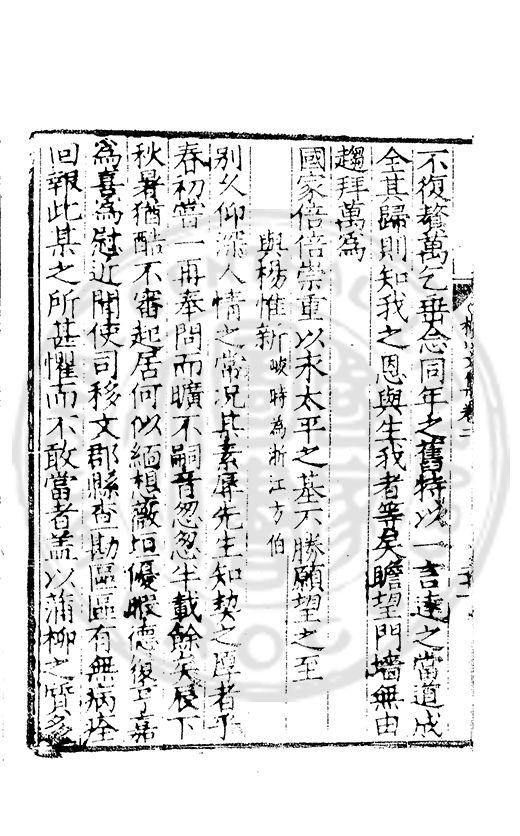 不復贅萬乞垂念同年之舊特以一言達之當道成
全其歸則知我之恩與生我者等矣瞻望門墻無由
趨拜萬為
國家倍倍崇重以永太平之基不勝願望之至
與楊惟新 時為浙江方伯
別久仰深人情之常况其素屏先生知契之厚者乎
春初嘗一再奉問而曠不嗣音忽忽半載餘矣
秋暑猶酷不審起居何似緬想嚴 優暇德
為喜為慰近聞使司移文郡縣查勘區區有無病痊
回報此某之所甚懼而不敢當者盖以蒲柳之質多